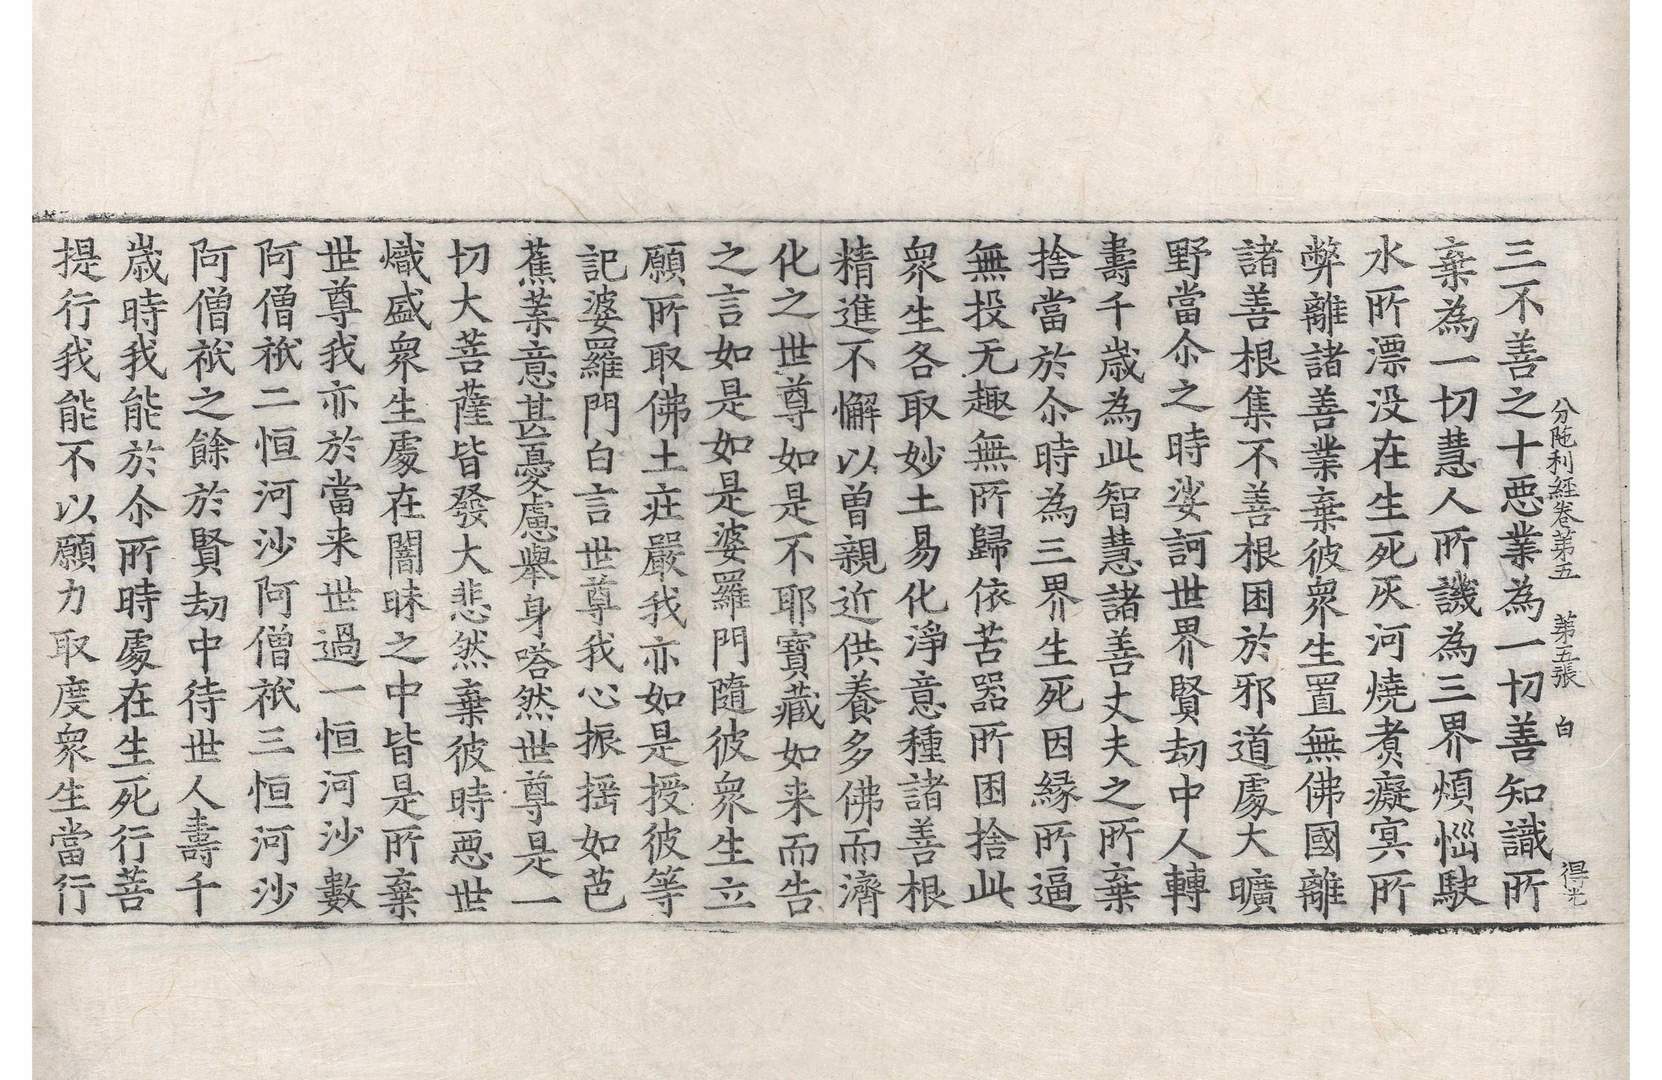 分陁利經卷第五　第五張　白　得光
三不善之十惡業為一切善知識所
棄為一切慧人所譏為三界煩惱駛
水所漂没在生死灰河燒煑癡冥所
弊離諸善業棄彼衆生置無佛國離
諸善根集不善根困於邪道處大曠
野當尒之時娑訶世界賢劫中人轉
壽千歲為此智慧諸善丈夫之所棄
捨當於尒時為三界生死因緣所逼
無投无趣無所歸依苦器所困捨此
衆生各取妙土易化淨意種諸善根
精進不懈以曽親近供養多佛而濟
化之世尊如是不耶寶藏如来而告
之言如是如是婆羅門隨彼衆生立
願所取佛土莊嚴我亦如是授彼等
記婆羅門白言世尊我心振摇如芭
蕉葉意甚憂慮舉身㗳然世尊是一
切大菩薩皆發大悲然棄彼時惡世
熾盛衆生處在闇昧之中皆是所棄
世尊我亦於當来世過一恒河沙數
阿僧祇二恒河沙阿僧祇三恒河沙
阿僧祇之餘於賢劫中待世人壽千
歲時我能於尒所時處在生死行菩
提行我能不以願力取度衆生當行